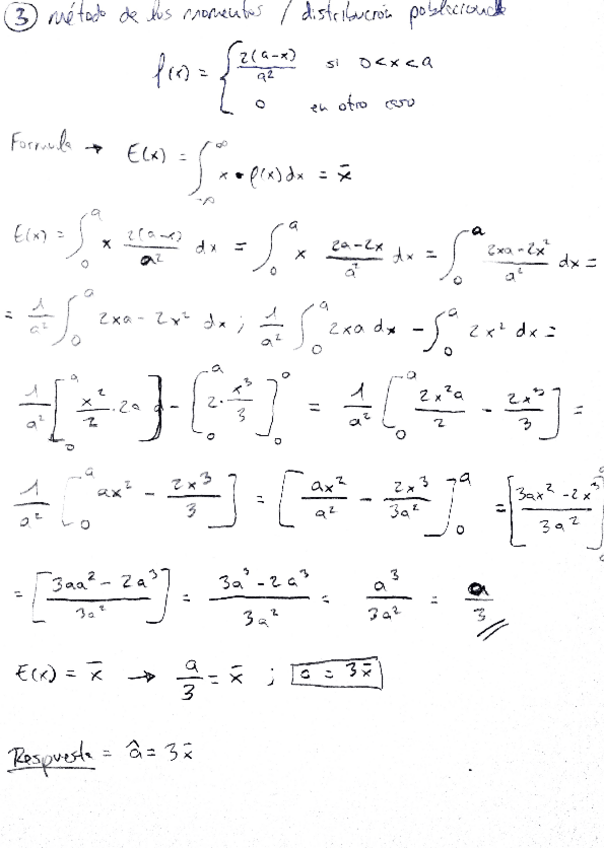 ③ método de los momentos / distribución poblacional
f(x) = { 2(a-x)/a² si 0<x<a
0 en otro caso
Formula → E(x) = ∫_{-∞}^{∞} x • f(x) dx = x̄
E(x) = ∫_0^a x 2(a-x)/a² dx = ∫_0^a x 2a-2x/a² dx = ∫_0^a 2xa-2x²/a² dx =
= 1/a² ∫_0^a 2xa - 2x² dx ; 1/a² ∫_0^a 2xa dx - ∫_0^a 2x² dx =
1/a² [_0^a x²/2 · 2a] - [_0^a 2·x³/3]_0^a = 1/a² [_0^a 2x²a/2 - 2x³/3] =
1/a² [_0^a ax² - 2x³/3] = [ax²/a² - 2x³/3a²]_0^a = [3ax²-2x³/3a²]_0^a
= [3aa²-2a³/3a²] = 3a³-2a³/3a² = a³/3a² = a/3
E(x) = x̄ → a/3 = x̄ ; a = 3x̄
Respuesta = â = 3x̄